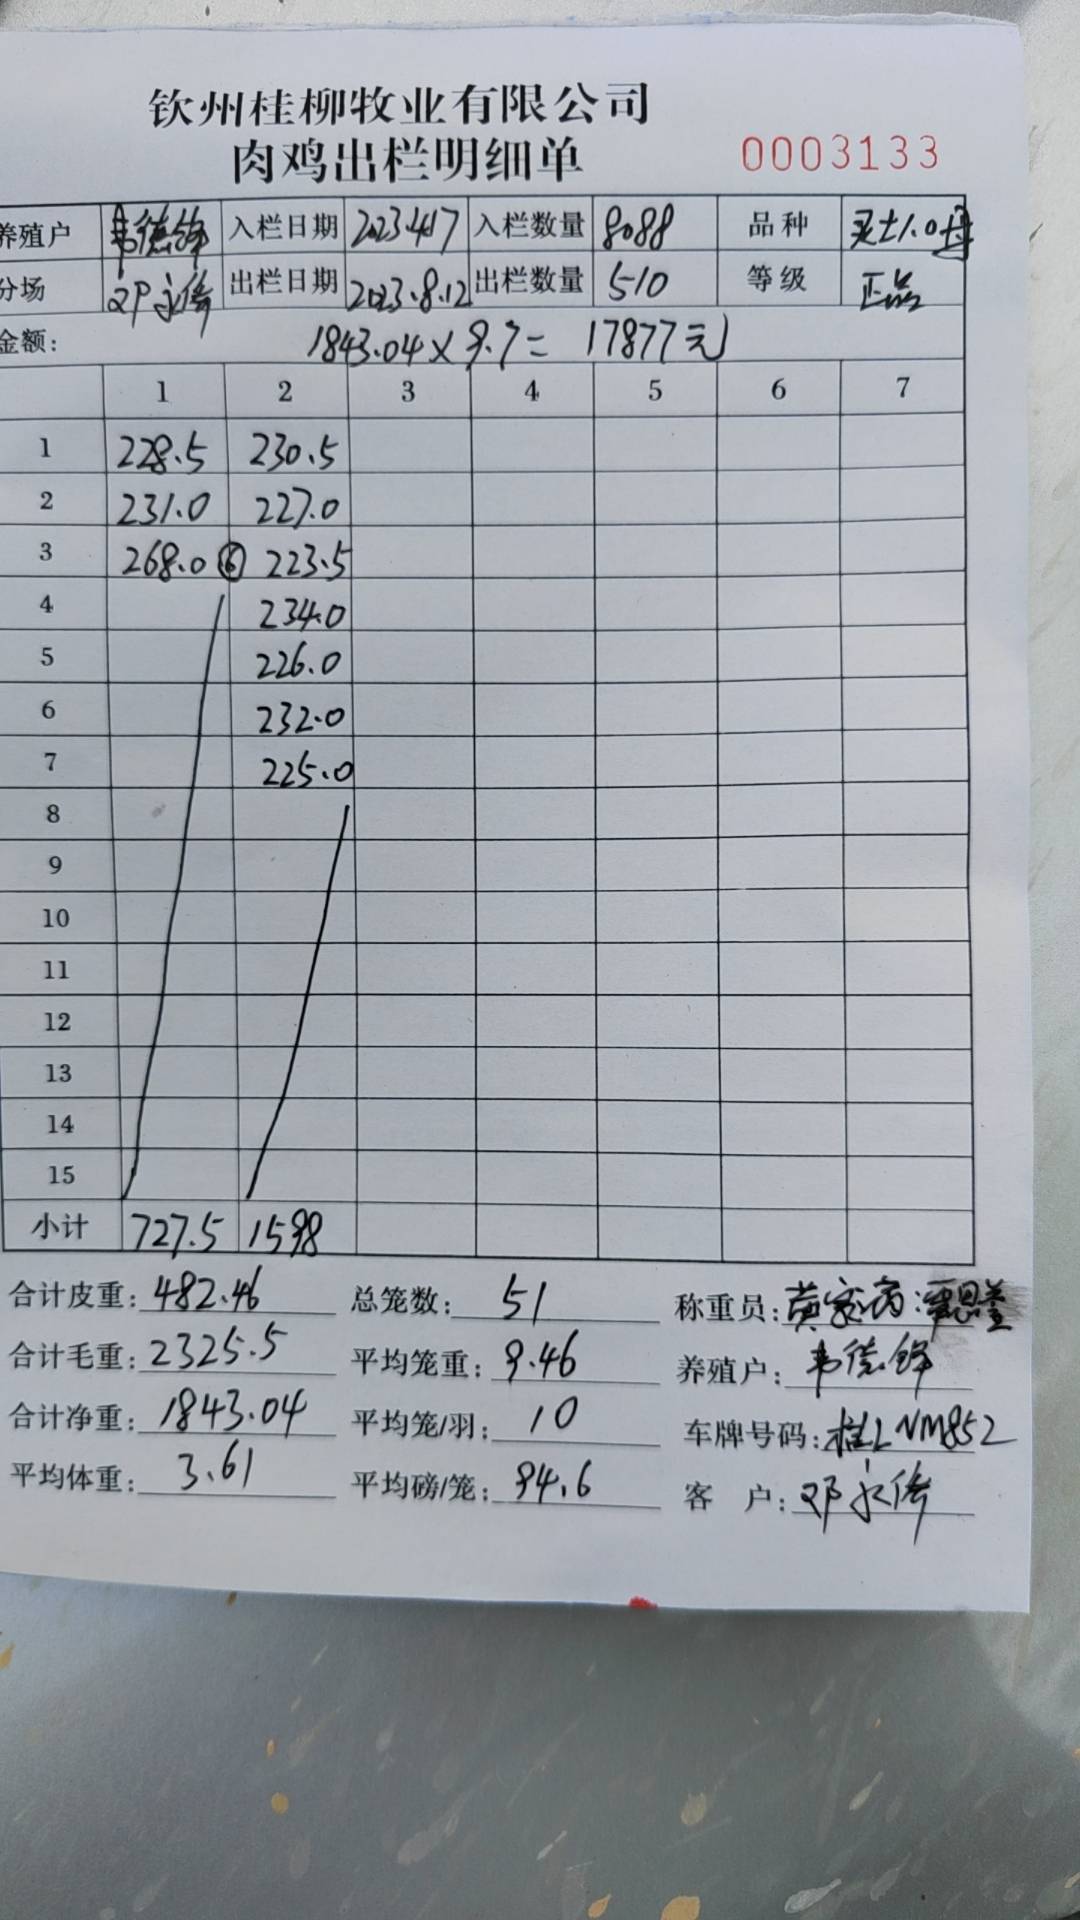 钦州桂柳牧业有限公司
肉鸡出栏明细单 0003133
养殖户 韦德锋 入栏日期 2023.4.17 入栏数量 8088 品种 灵土1.0母
分场 邓永俗 出栏日期 2023.8.12 出栏数量 510 等级 正品
金额: 1843.04×9.7= 17877元
1 2 3 4 5 6 7
1 228.5 230.5
2 231.0 227.0
3 268.0 ⑥ 223.5
4 234.0
5 226.0
6 232.0
7 225.0
8
9
10
11
12
13
14
15
小计 727.5 1598
合计皮重: 482.46 总笼数: 51 称重员: 黄家
合计毛重: 2325.5 平均笼重: 9.46 养殖户: 韦德锋
合计净重: 1843.04 平均笼/羽: 10 车牌号码: 桂LNM852
平均体重: 3.61 平均磅/笼: 94.6 客户: 邓永